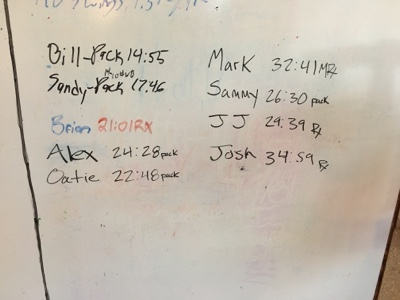 Bill-Pack 14:55
Sandy-Pack 17:46
Brian 21:01 RX
Alex 24:28 pack
Oatie 22:48 pack
Mark 32:41 MRx
Sammy 26:30 pack
JJ 29:39 Rx
Josh 34:59 Rx